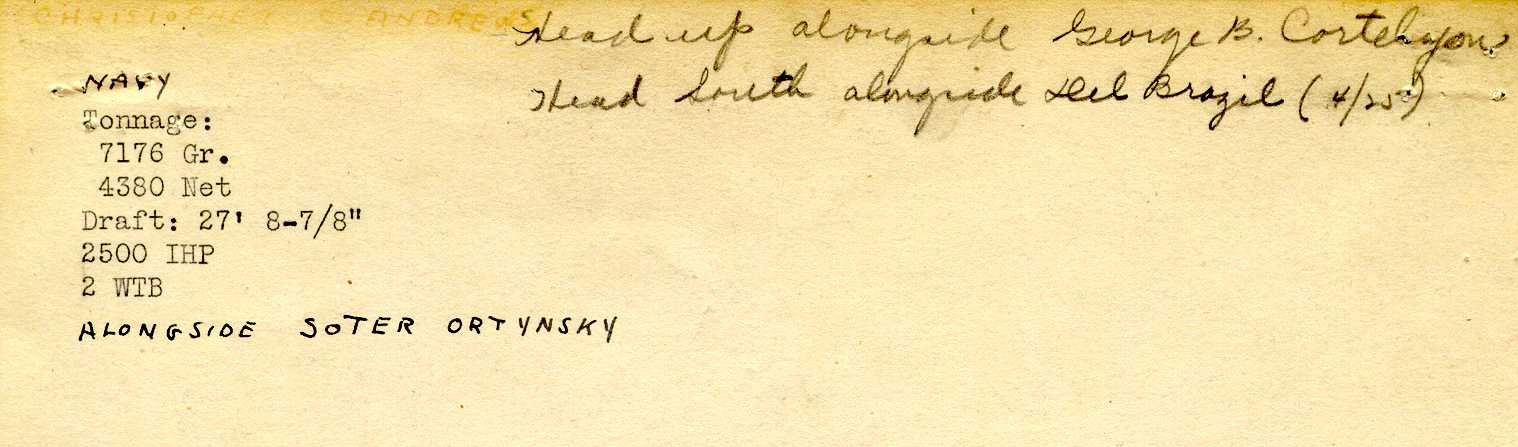 CHRISTOPHER C ANDREWS
Head up alongside George B. Cortelyou
Head South alongside Del Brazil (4/25)
NAVY
Tonnage:
7176 Gr.
4380 Net
Draft: 27' 8-7/8"
2500 IHP
2 WTB
ALONGSIDE SOTER ORTYNSKY